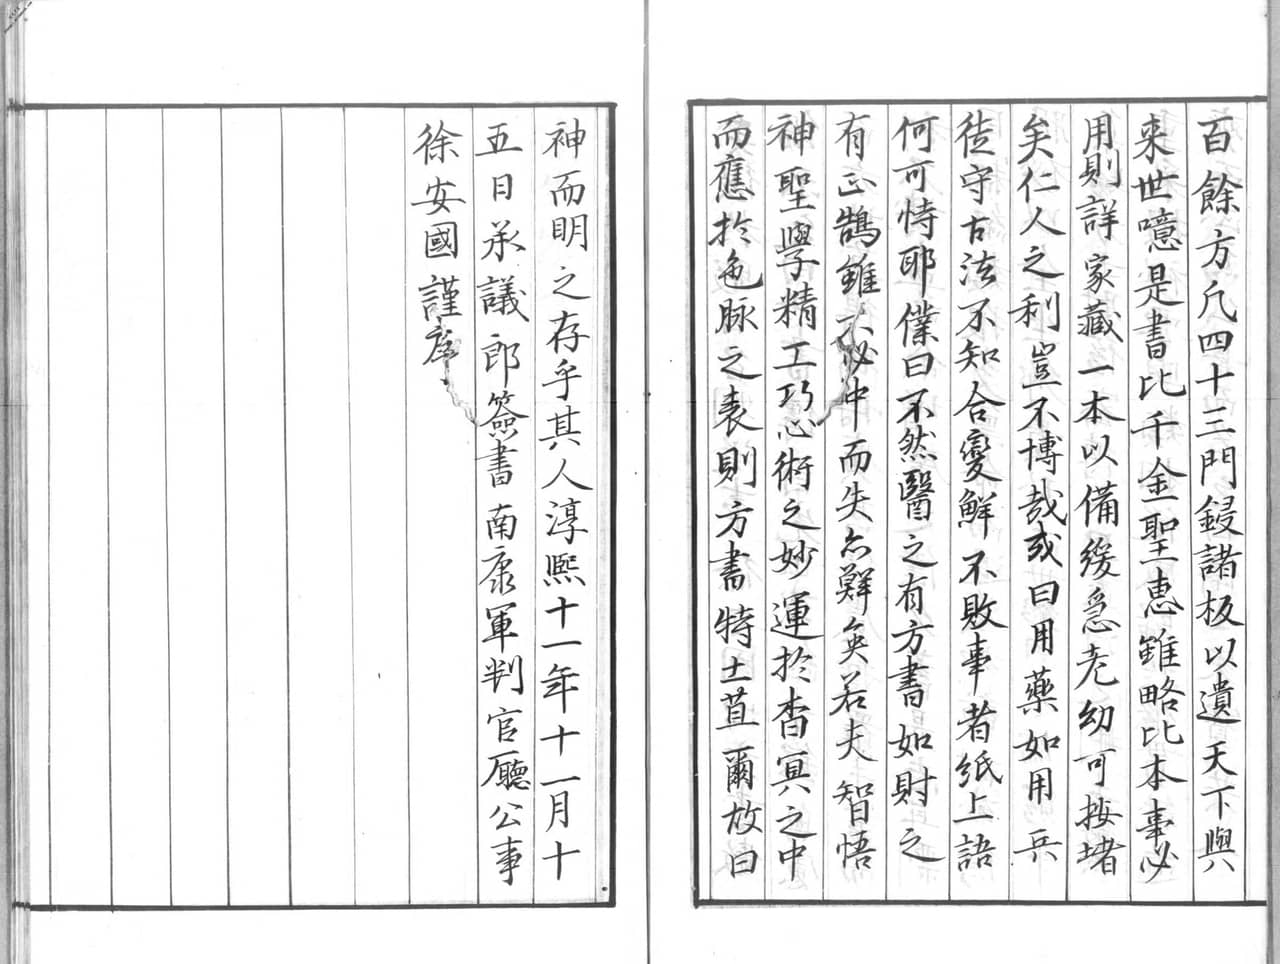 百餘方凡四十三門鋟諸板以遺天下與
来世噫是書比千金聖恵雖略比本事必
用則詳家藏一本以備緩急老幼可按堵
矣仁人之利豈不博哉或曰用藥如用兵
徒守古法不知合變鮮不敗事者紙上語
何可恃耶僕曰不然醫之有方書如財之
有正鵠雖不必中而失亦鮮矣若夫智悟
神聖學精工巧心術之妙運於杳冥之中
而應於色脉之表則方書特土苴爾故曰
神而明之存乎其人淳熙十一年十一月十
五日承議郎簽書南康軍判官廳公事
徐安國謹序